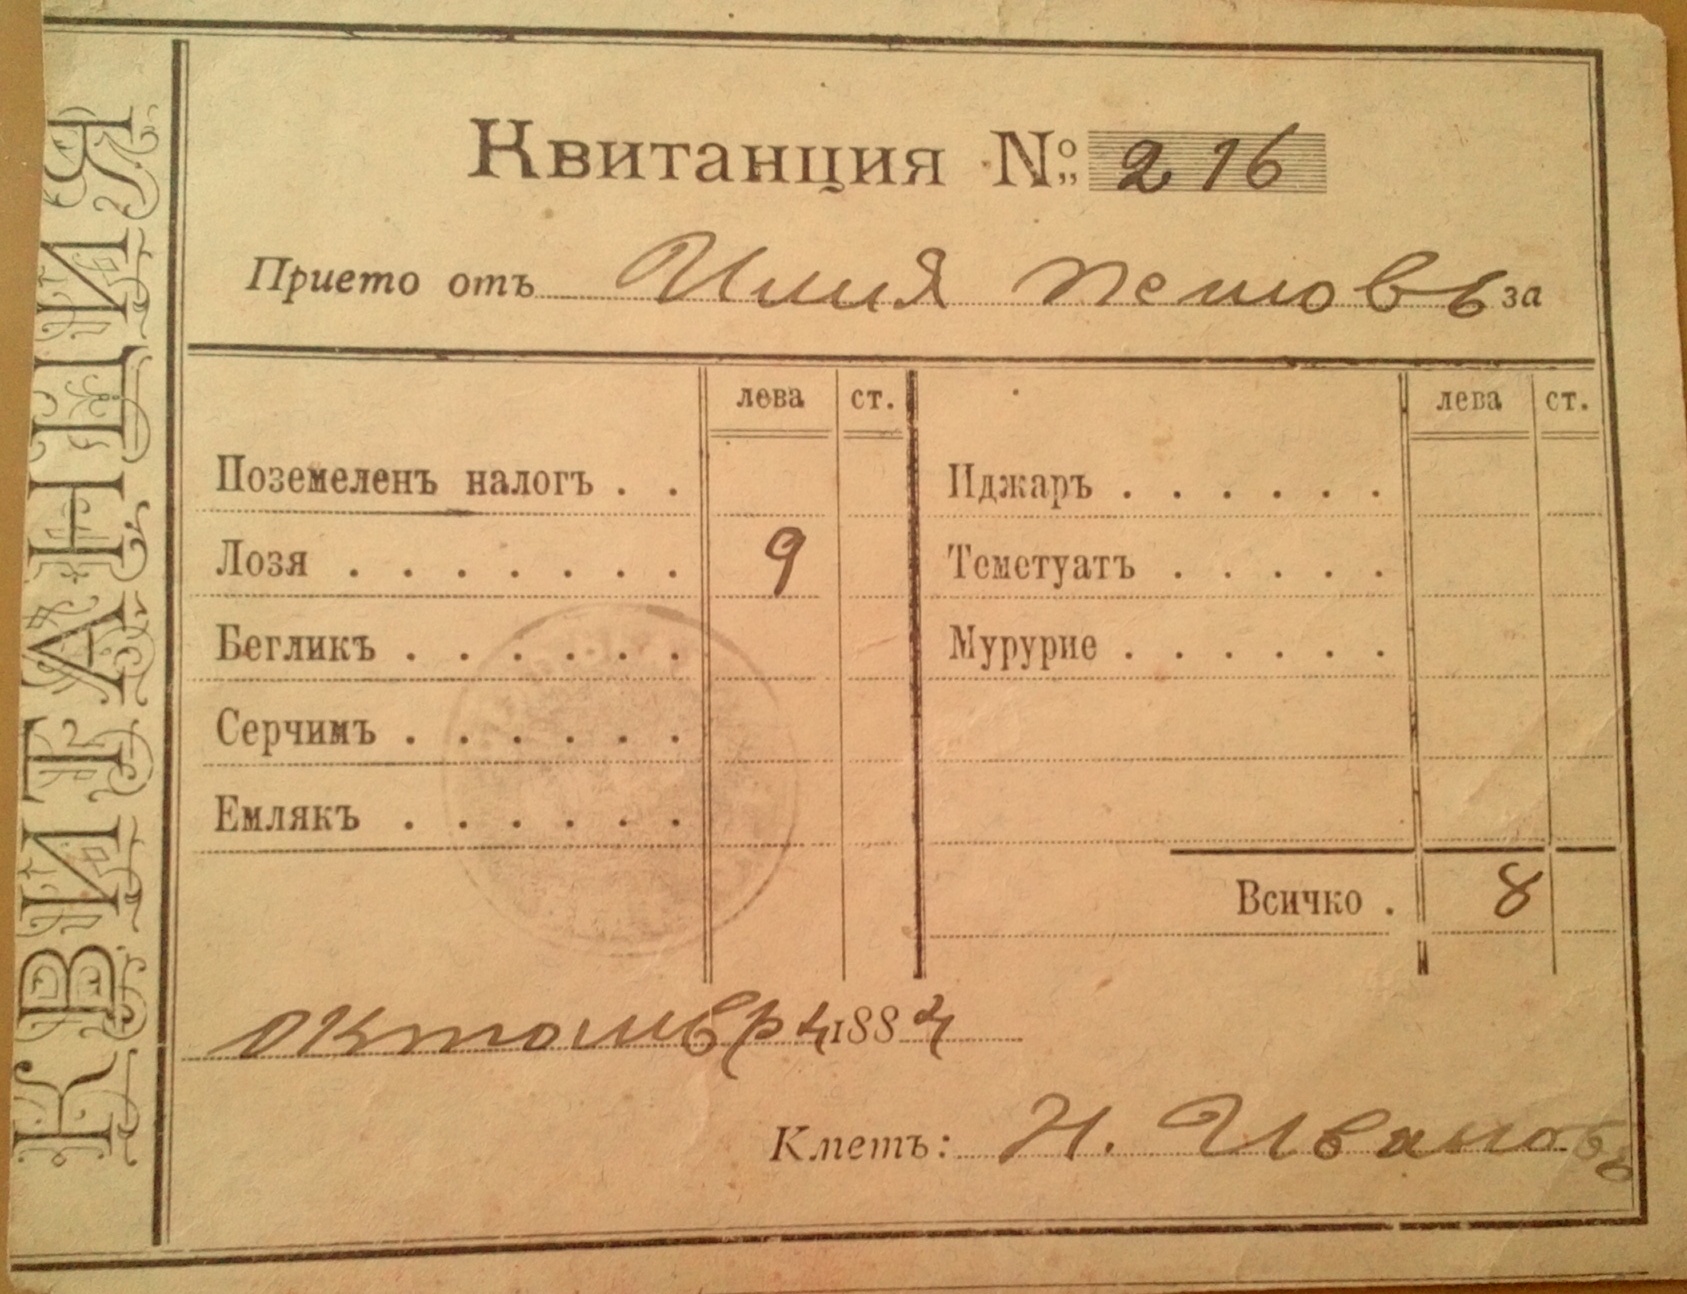 КВИТАНЦИЯ
Квитанция №: 216
Прието отъ Илия Петовъ за
лева ст. лева ст.
Поземеленъ налогъ . . Иджаръ . . . . . .
Лозя . . . . . . . 9 Теметуатъ . . . . .
Бегликъ . . . . . . Мурурие . . . . . .
Серчимъ . . . . . .
Емлякъ . . . . . .
Всичко . 8
октомвр 4 1884
Кметъ: Н. Ивановъ